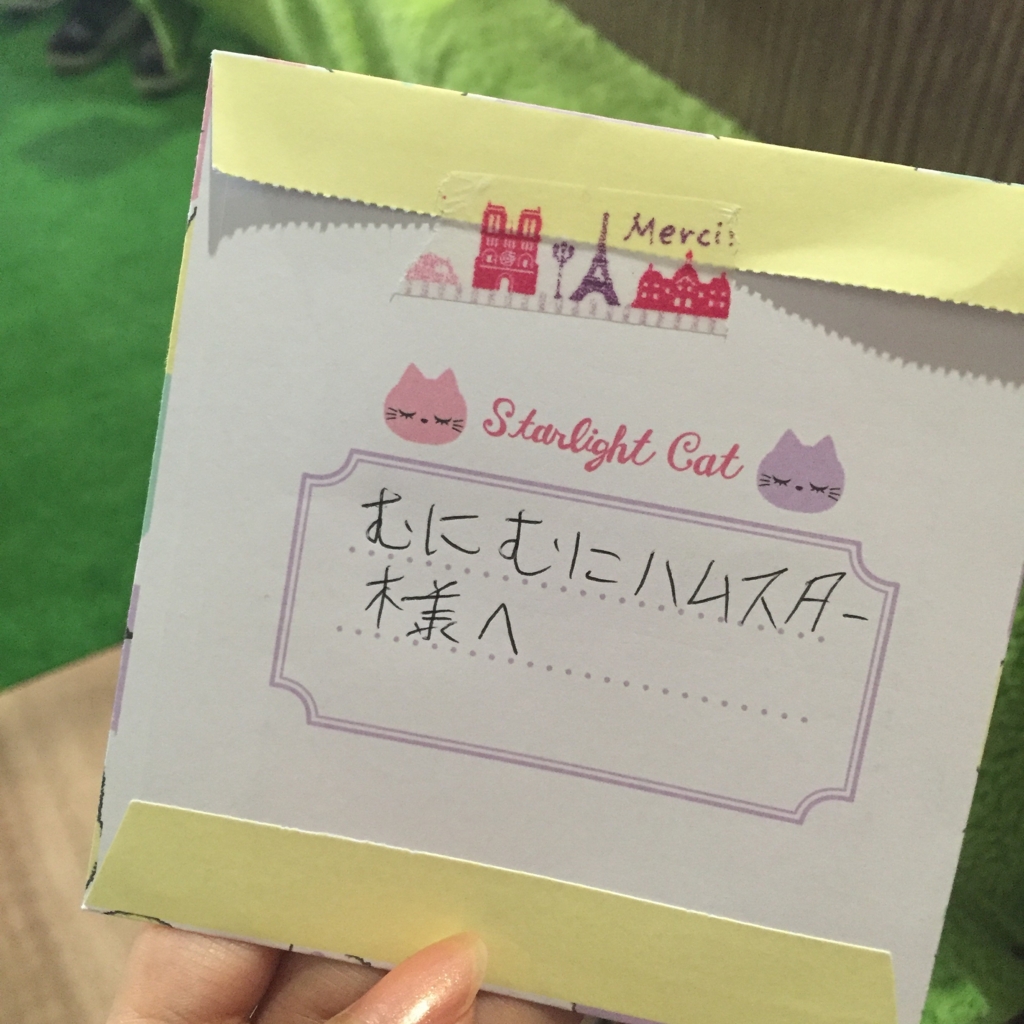 Merci!
Starlight Cat
むにむにハムスター
様へ